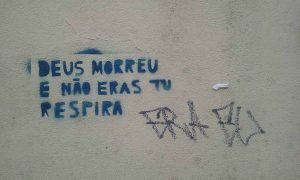 DEUS MORREU
E NÃO ERAS TU
RESPIRA
ERA EU